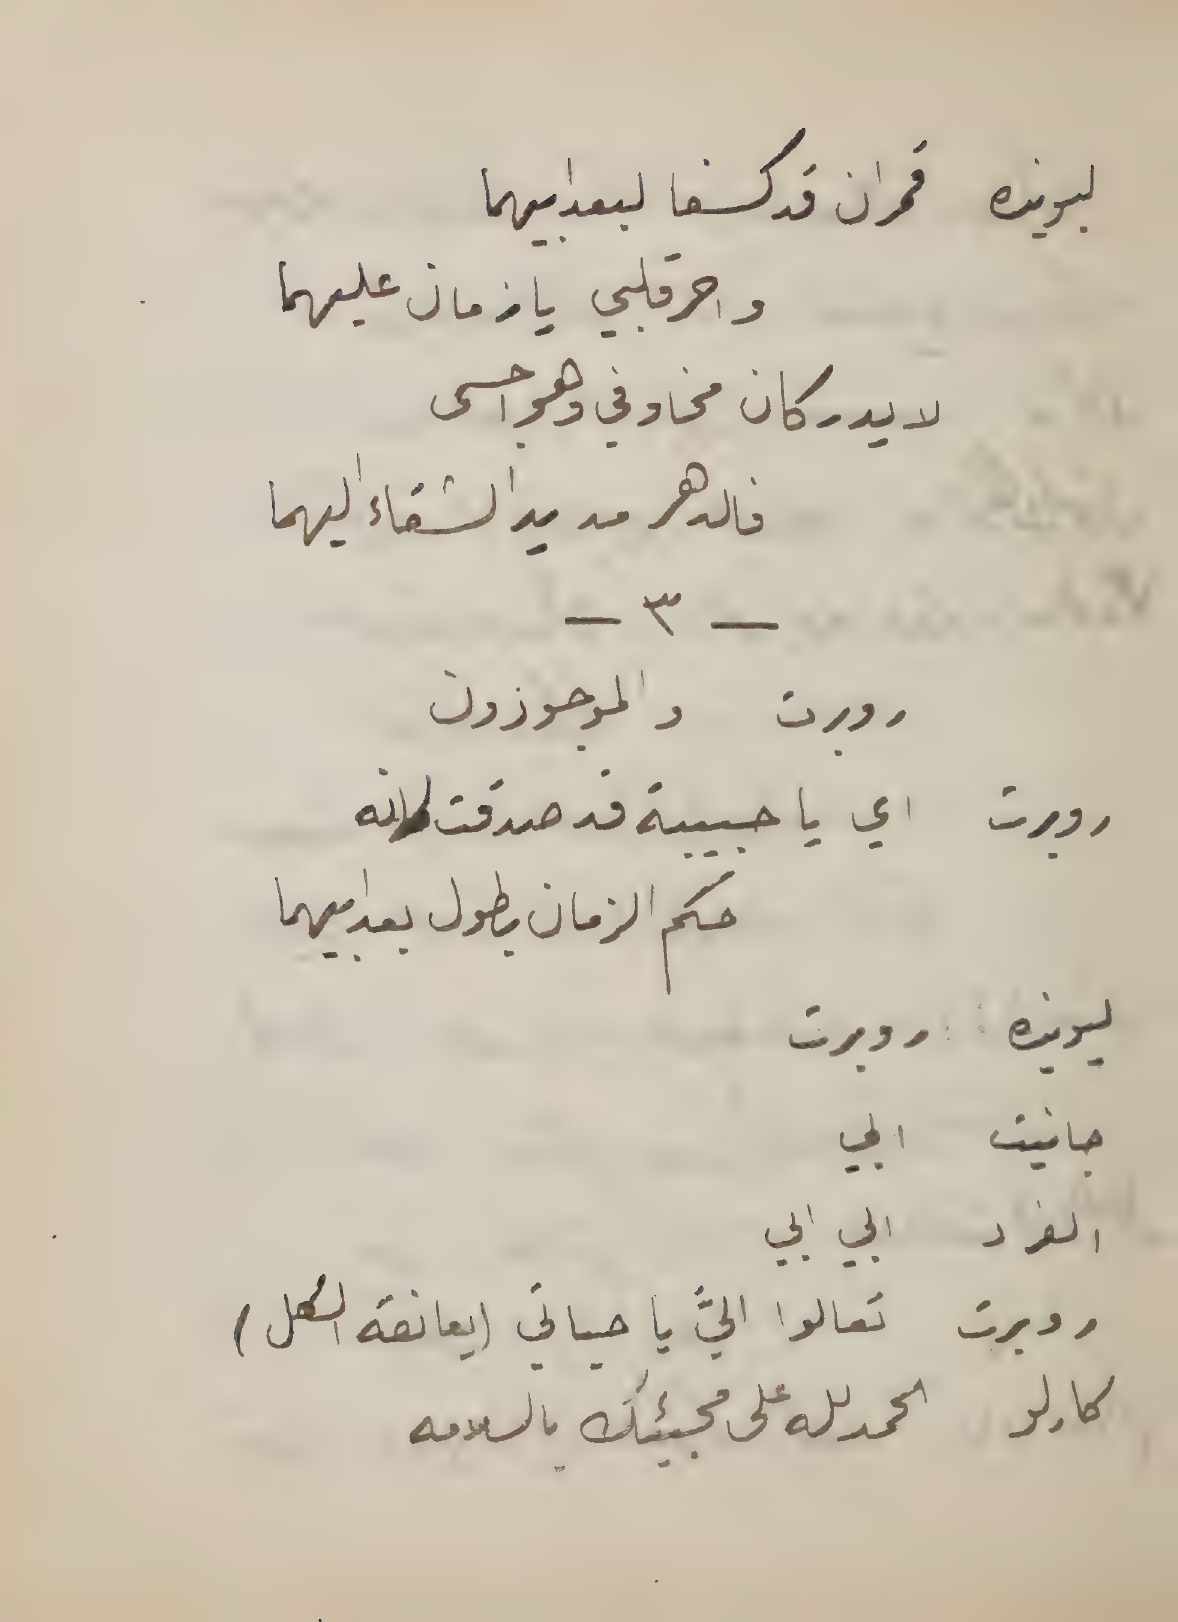 ليونيده قمران قد كسفا لبعد ابيهما
واحر قلبي يا زمان عليهما
لا يدركان مخاوفي وهواجسى
فالدهر مد يد الشقاء اليهما
— ٣ —
روبرت والموجوزون
روبرت اي يا حبيبة قد صدقت فانه
حكم الزمان بطول بعد ابيهما
ليونيده : روبرت
جانيت ابي
الفرد ابي ابي
روبرت تعالوا اليَّ يا حياتي (يعانقه الكل)
كارلو الحمد لله على مجيئك بالسلامه